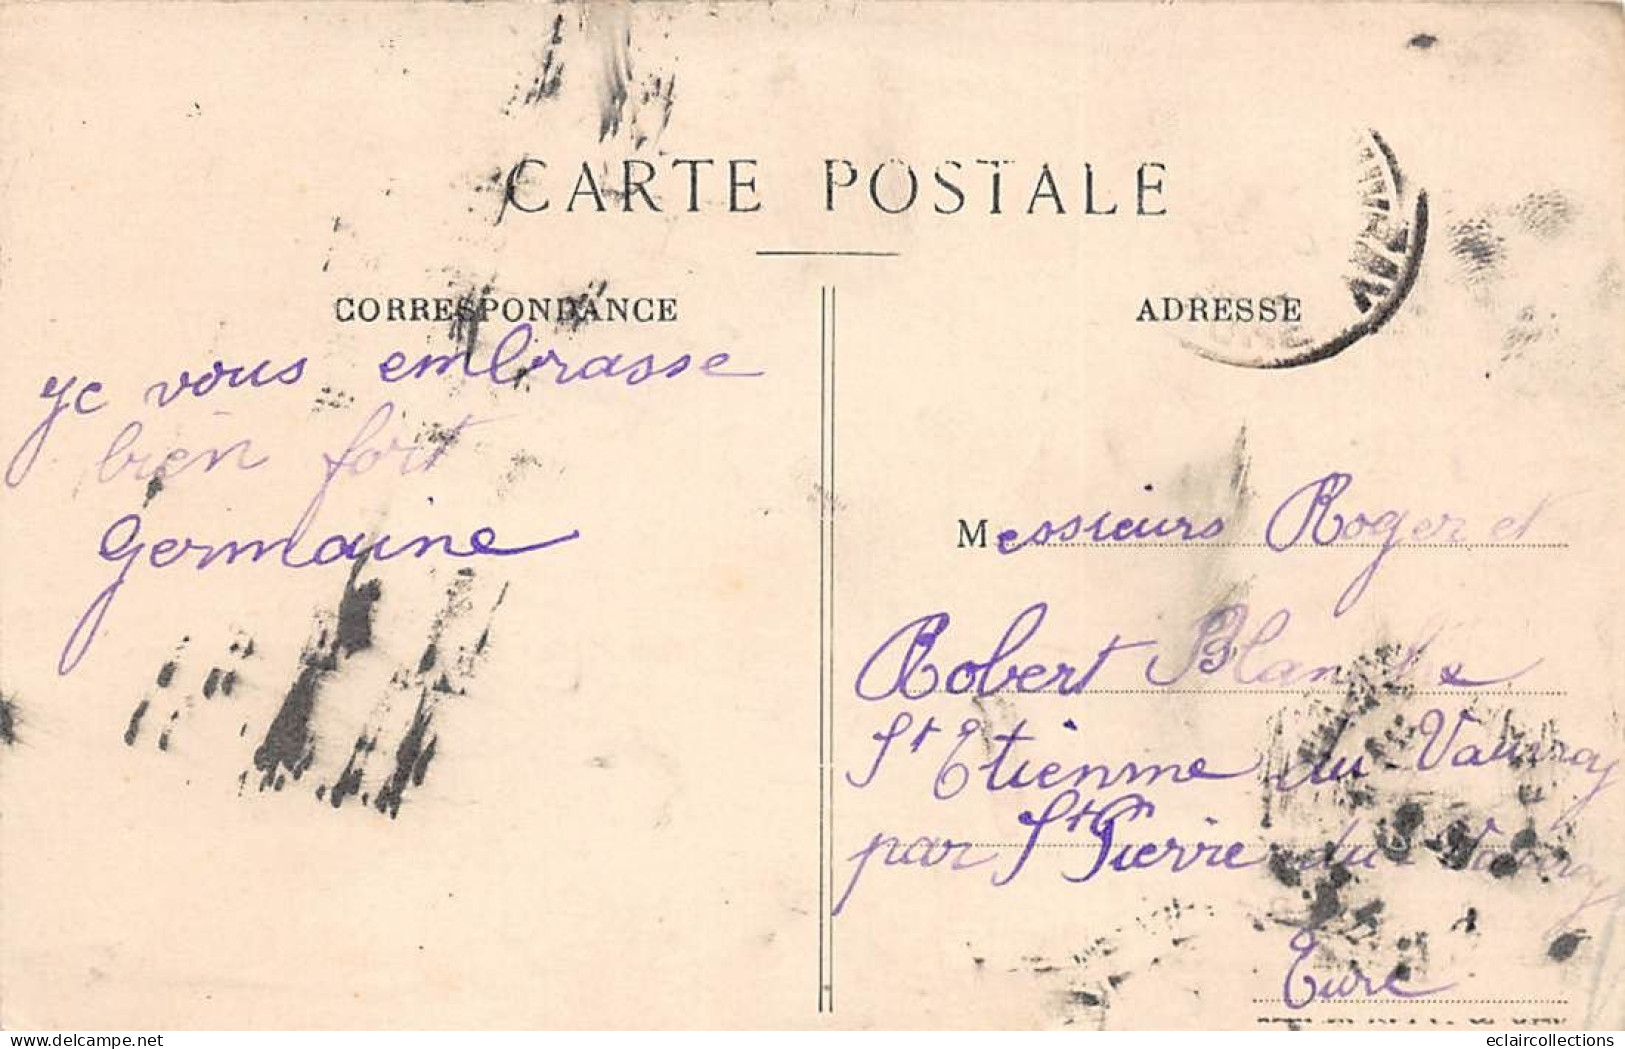 CARTE POSTALE
CORRESPONDANCE
ADRESSE
Je vous embrasse
bien fort
Germaine
Messieurs Roger et
Robert Blanche
St Etienne du Vauvray
par St Pierre du Vauvray
Eure
eclaircollections